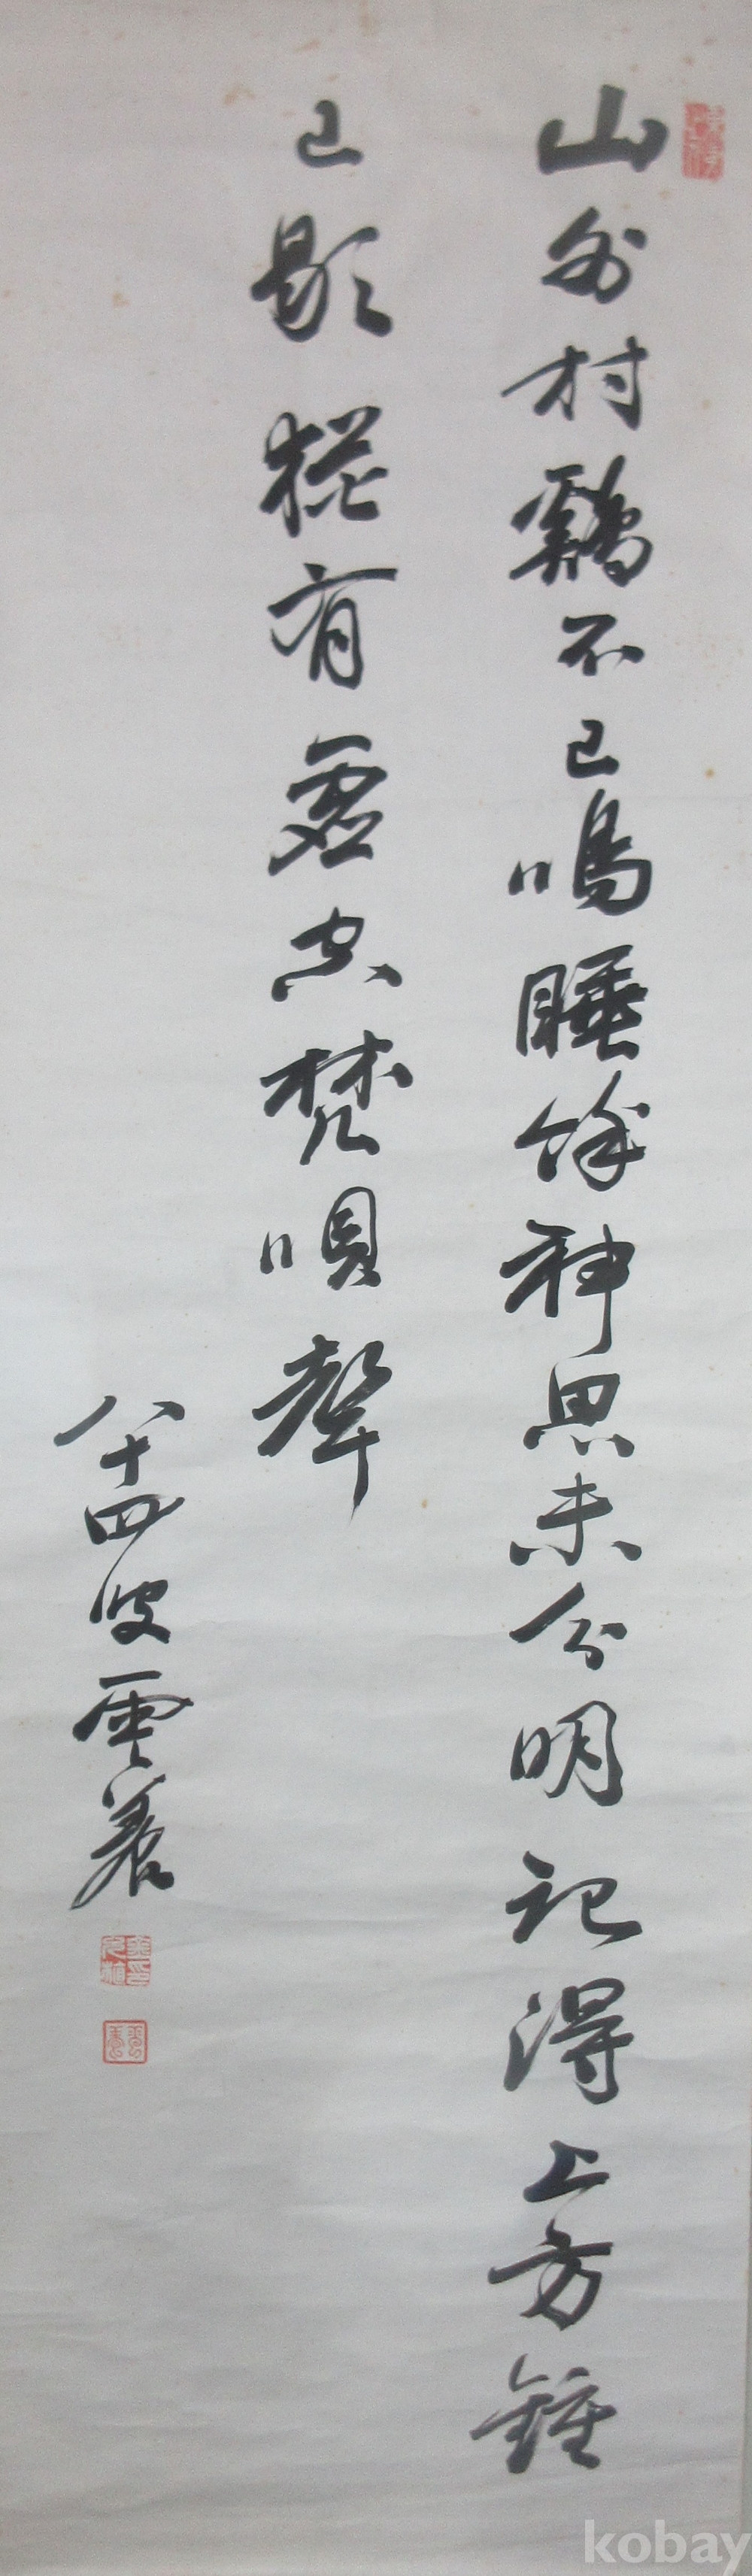 山外村鷄不已鳴睡餘神思未分明記得上方鍾
已歇猶有虚空梵唄聲
八十四叟雲
kobay